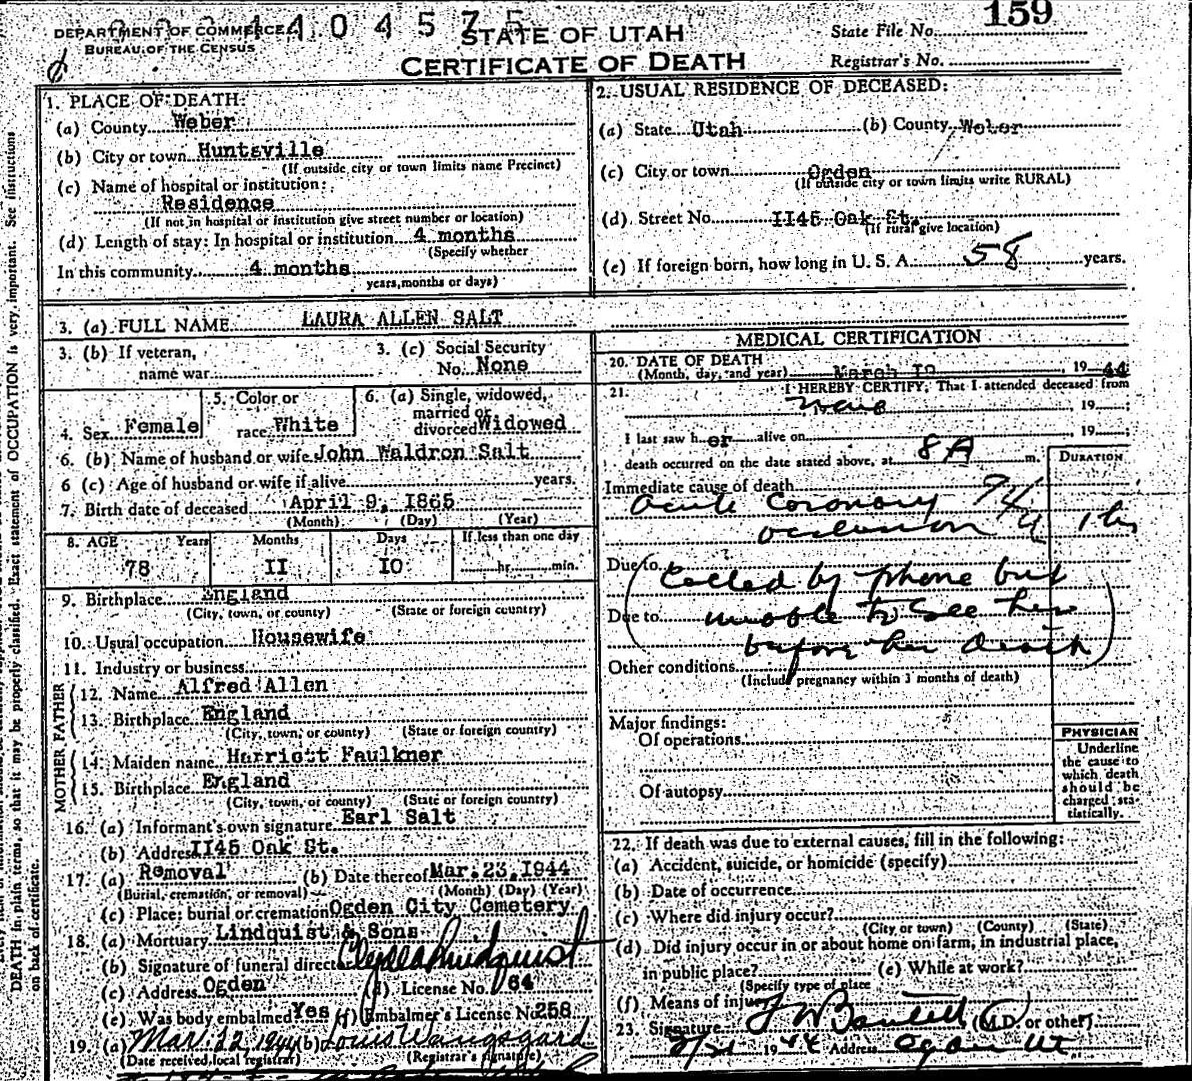 DEPARTMENT OF COMMERCE
BUREAU OF THE CENSUS
404575
STATE OF UTAH
CERTIFICATE OF DEATH
State File No. 159
Registrar's No.
1. PLACE OF DEATH:
(a) County Weber
(b) City or town Huntsville
(If outside city or town limits name Precinct)
(c) Name of hospital or institution:
Residence
(If not in hospital or institution give street number or location)
(d) Length of stay: In hospital or institution 4 months
(Specify whether
In this community 4 months
years, months or days)
2. USUAL RESIDENCE OF DECEASED:
(a) State Utah (b) County Weber
(c) City or town Ogden
(If outside city or town limits write RURAL)
(d) Street No. II45 Oak St.
(If rural give location)
(e) If foreign born, how long in U. S. A. 58 years.
3. (a) FULL NAME LAURA ALLEN SALT
3. (b) If veteran, name war
3. (c) Social Security No. None
4. Sex Female
5. Color or race White
6. (a) Single, widowed, married or divorced Widowed
6. (b) Name of husband or wife John Waldron Salt
6 (c) Age of husband or wife if alive years.
7. Birth date of deceased April 9, I865
(Month) (Day) (Year)
8. AGE Years Months Days If less than one day
78 II IO hr. min.
9. Birthplace England
(City, town, or county) (State or foreign country)
10. Usual occupation Housewife
11. Industry or business
FATHER
12. Name Alfred Allen
13. Birthplace England
(City, town, or county) (State or foreign country)
MOTHER
14. Maiden name Harriett Faulkner
15. Birthplace England
(City, town, or county) (State or foreign country)
16. (a) Informant's own signature Earl Salt
(b) Address II45 Oak St.
17. (a) Removal (b) Date thereof Mar. 23, 1944
(Burial, cremation, or removal) (Month) (Day) (Year)
(c) Place: burial or cremation Ogden City Cemetery
18. (a) Mortuary Lindquist & Sons
(b) Signature of funeral director Lindquist
(c) Address Ogden (d) License No. 64
(e) Was body embalmed Yes (f) Embalmer's License No. 258
19. (a) Mar. 22, 1944 (b) Louis Wangsgard
(Date received local registrar) (Registrar's signature)
MEDICAL CERTIFICATION
20. DATE OF DEATH
(Month, day, and year) March 19 44
21. I HEREBY CERTIFY, That I attended deceased from
None 19 ;
I last saw her alive on 19 ;
death occurred on the date stated above, at 8 A m.
DURATION
Immediate cause of death
Acute Coronary 94a
occlusion 1 hr
Due to (Called by phone but
Due to unable to see her
before her death)
Other conditions
(Include pregnancy within 3 months of death)
Major findings:
Of operations
Of autopsy
PHYSICIAN
Underline
the cause to
which death
should be
charged sta-
tistically.
22. If death was due to external causes, fill in the following:
(a) Accident, suicide, or homicide (specify)
(b) Date of occurrence
(c) Where did injury occur?
(City or town) (County) (State)
(d) Did injury occur in or about home on farm, in industrial place,
in public place? (e) While at work?
(Specify type of place
(f) Means of injury
23. Signature (M.D. or other)
19 44 Address Ogden Ut
DEATH in plain terms, so that it may be properly classified. Exact statement of OCCUPATION is very important. See instructions
on back of certificate.